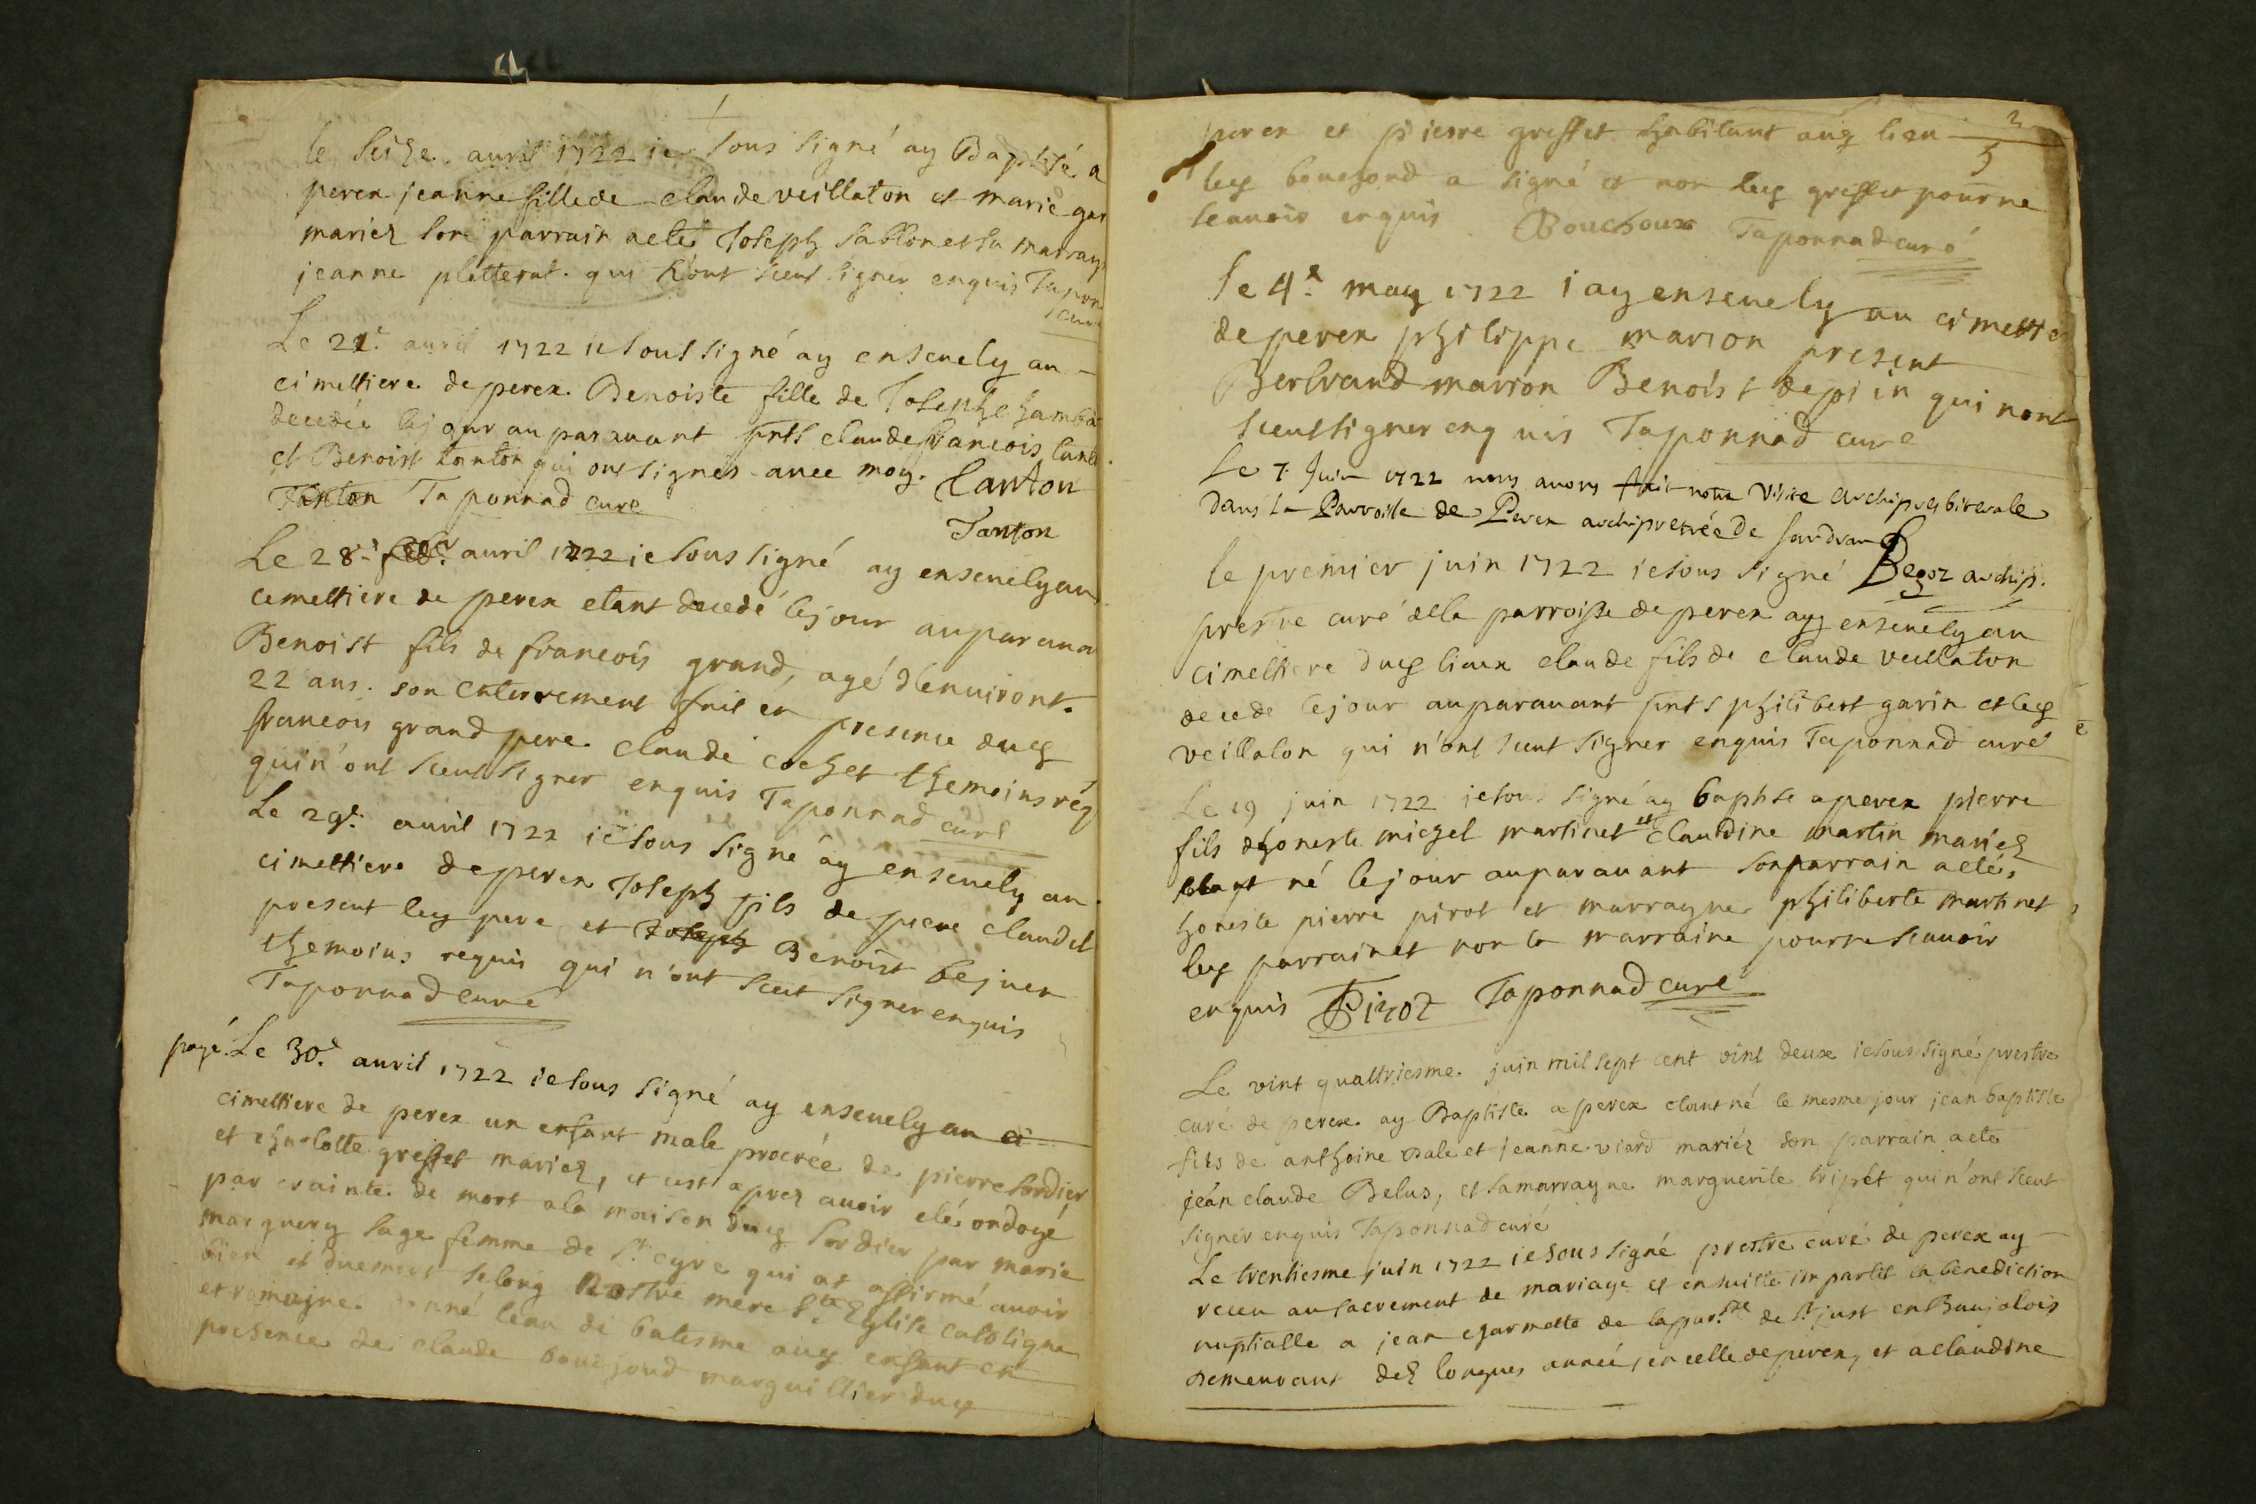 le seize avril 1722 ie sous signé ay Baptisé a
perex jeanne fille de claude veillaton et marie gar
mariez son parrain a eté Joseph sablon et sa marray
jeanne pletterat qui n'ont sceut signer enquis Tapon
curé
Le 21e avril 1722 ie sous signé ay enseuely au
cimettiere de perex Benoiste fille de Joseph chamba
decedée le jour auparauant pnts claude francois tant
et Benoist tanton qui ont signés auec moy. Tanton
Tanton Taponnad curé
Tanton
Le 28e avril 1722 ie sous signé ay enseuely au
cemettiere de perex etant decedé le jour auparaua
Benoist fils de francois grand, agé d'enuiront
22 ans. son enterrement fait en presence dud
francois grand pere claude cochet themoins req
qui n'ont sceut signer enquis Taponnad curé
Le 29e avril 1722 ie sous signé ay enseuely au
cimettiere de perex Joseph fils de pierre claudet
present led pere et Joseph Benoist bejuer
themoins requis qui n'ont sceut signer enquis
Taponnad curé
payé. Le 30e avril 1722 ie sous signé ay enseuely au ci
cimettiere de perex un enfant male procrée de pierre sordier
et charlotte greffet mariez, et cest aprez auoir eté ondoyé
par crainte de mort a la maison dud sordier par marie
marguery sage femme de st cyre qui at affirmé auoir
bien et duement selong nostre mere ste Eglise catolique
et romaine donné leau de batesme aud enfant en
presence de claude bouchoud marguillier dud
2
3
perex et pierre greffet habitant aud lieu
led bouchoud a signé et non led greffet pour ne
scauoir enquis Bouchoux Taponnad curé
le 4e may 1722 i ay enseuely au cimettie
de perex philippe marion present
Bertrand marion Benoist depiin qui nont
sceut signer enquis Taponnad curé
Le 7 Juin 1722 nous auons fait notre visite archipresbiterale
dans la Parroisse de Perex archipretrée de sandran
Begoz archip.
le premier juin 1722 ie sous signé
prestre curé de la parroisse de perex ay enseuely au
cimettiere dud lieux claude fils de claude veillaton
decede le jour auparauant pnts philibert garin et led
veillaton qui n'ont sceut signer enquis Taponnad curé
Le 19 juin 1722 ie sous signé ay baptise a perex pierre
fils dhoneste michel martinet et claudine martin mariez
etant né le jour auparauant son parrain a eté
honeste pierre pirot et marrayne philiberte martinet
led parrain et non la marraine pour ne scauoir
enquis Pirot Taponnad curé
Le vint quattriesme juin mil sept cent vint deux ie sous signé prestre
curé de perex ay Baptiste a perex etant né le mesme jour jean baptiste
fils de anthoine vale et jeanne viard mariéz son parrain a eté
jean claude Belus, et sa marrayne marguerite tripet qui n'ont sceut
signer enquis Taponnad curé
Le trentiesme juin 1722 ie sous signé prestre curé de perex ay
receu au sacrement de mariage et en suitte impartit la benediction
nuptialle a jean charmette de la parsse de st just en Baujolois
demeurant dez longues année, en celle de perex, et a claudine